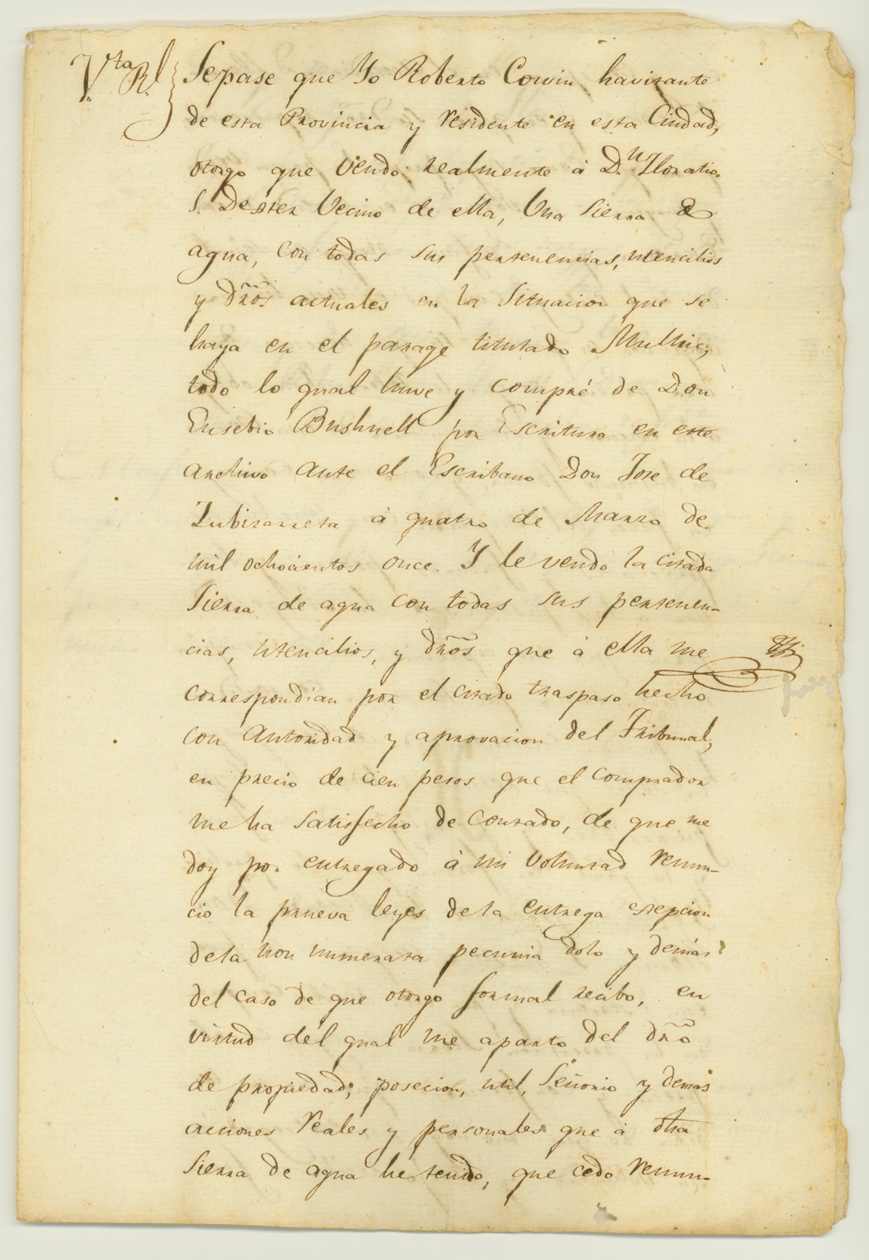 Vta Rl Sepase que Yo Roberto Corvin havitante
de esta Provincia y residente en esta Ciudad,
otorgo que vendo realmente á Dn Horatio
S. Dexter Vecino de ella, Una sierra de
agua, con todas sus pertenencias, utencilios
y dr̃os actuales en la situacion que se
haya en el parage titutado
todo lo qual huve y compré de Don
Eusebio Bushnell por Escritura en este
archivo ante el Escribano Don Jose de
Zubizarreta á quatro de Marzo de
mil ochocientos once. Y le vendo la citada
sierra de agua con todas sus pertenen-
cias, utencilios, y dr̃os que á ella me
correspondian por el citado traspaso hecho
con autoridad y aprovacion del Tribunal,
en precio de cien pesos que el comprador
me ha satisfecho de contado, de que me
doy por entregado á mi voluntad renun-
cio la prueva leyes dela entrega esepcion
dela non numerata pecunia dolo y demas
del caso de que otorgo formal recibo, en
virtud del qual me aparto del dr̃o
de propiedad; posecion, util, Señorio y demas
acciones reales y personales que á dha
sierra de agua he tenido, que cedo renun-